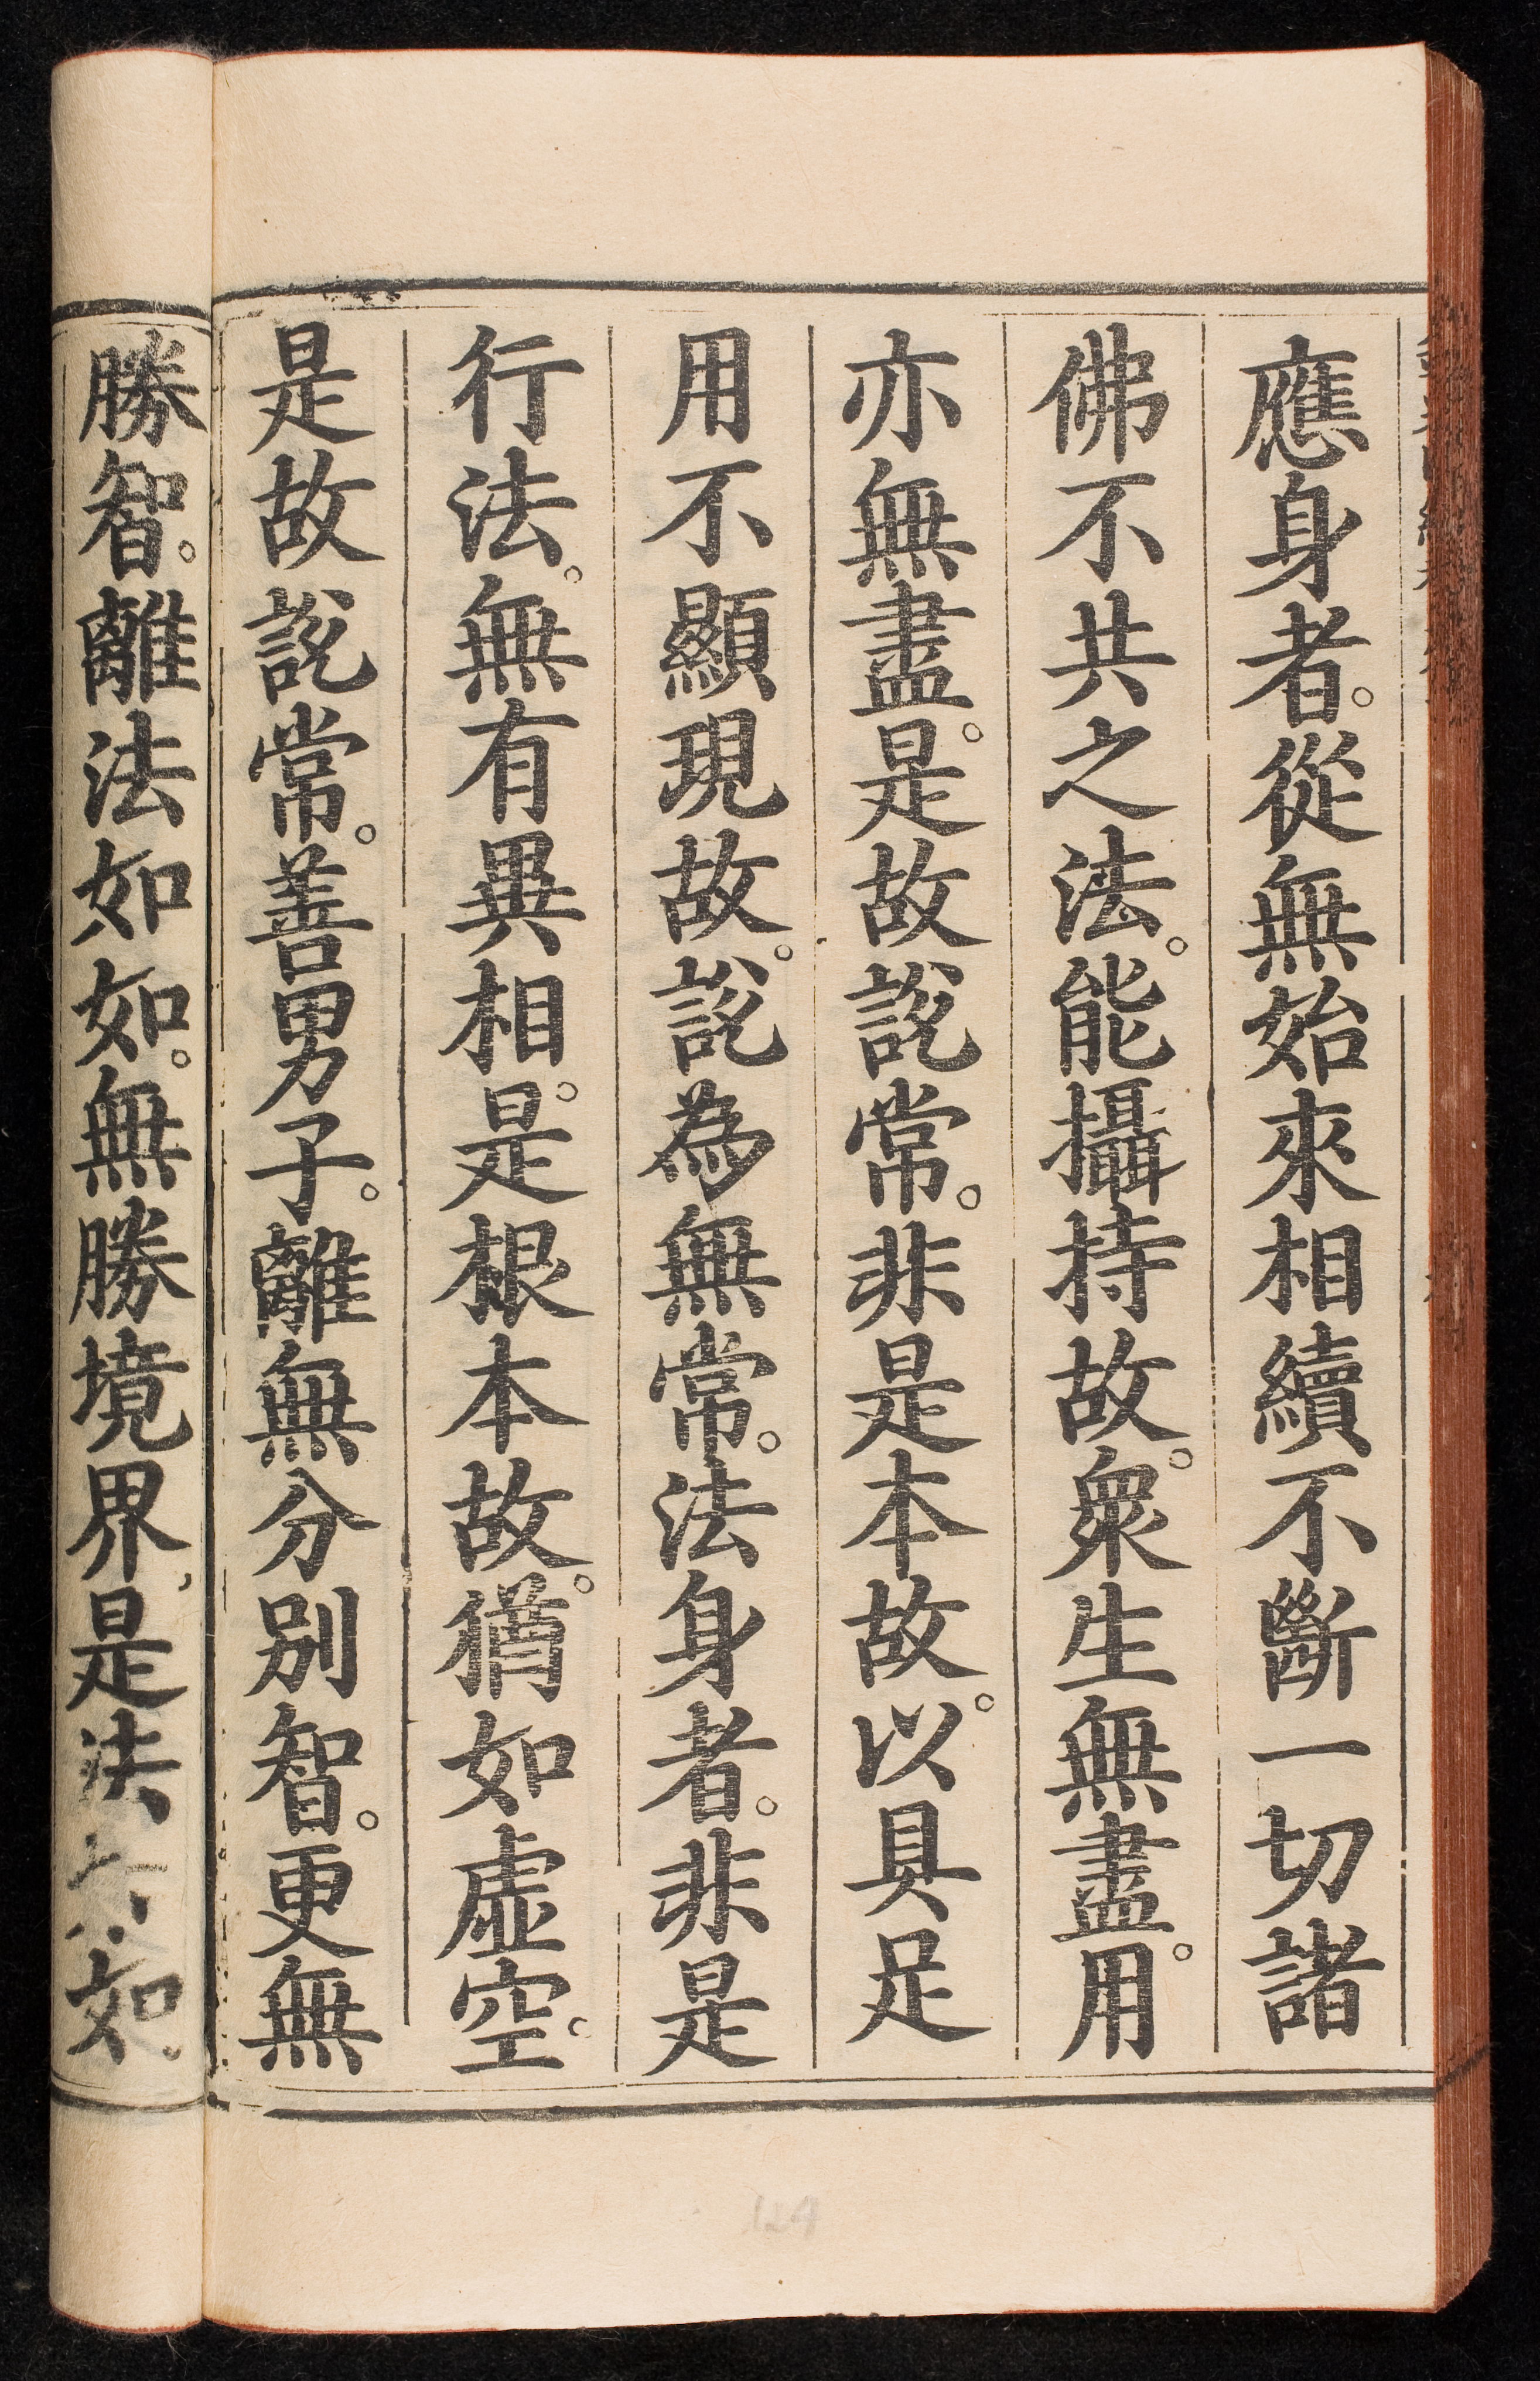 應身者。從無始來相續不斷一切諸
佛不共之法。能攝持故。衆生無盡。用
亦無盡。是故說常。非是本故。以具足
用不顯現故。說為無常。法身者。非是
行法。無有異相。是根本故。猶如虛空。
是故說常。善男子。離無分別智。更無
勝智。離法如如。無勝境界是法如